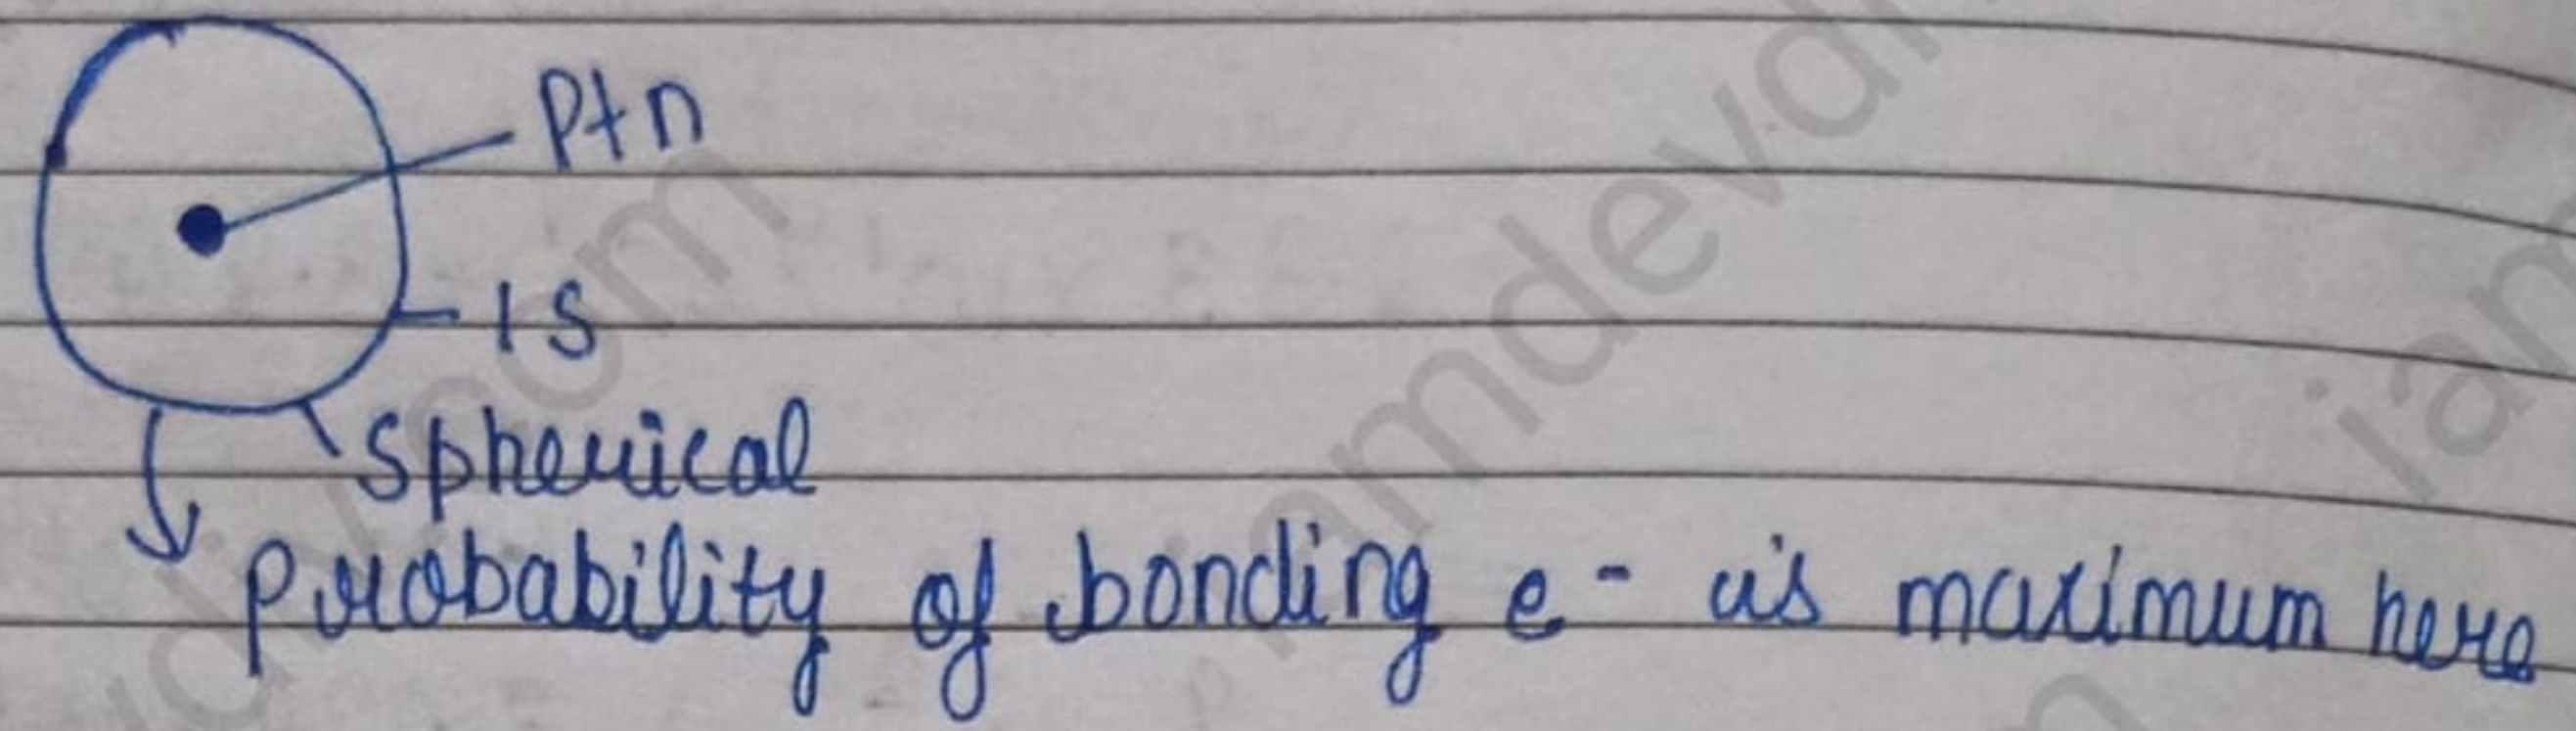 P+n
1S
Spherical
probability of bonding e- is maximum here
iamdevdi
iam